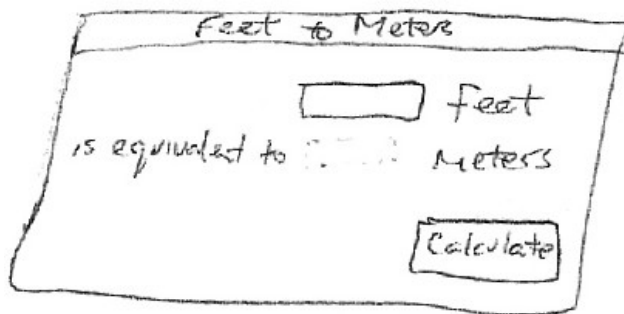 Feet to Meters
Feet
is equivalent to Meters
Calculate